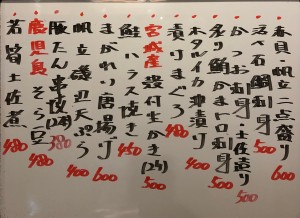 貝・帆立二点盛り 600
活〆石鯛刺身 500
かつお刺身 土佐造り 500
生 かまトロ刺身 500
ホタルイカ沖漬け 400
漬けまぐろ 480
宮城産 殻付生かき 500
鮭ハラス焼き 450
まがれい唐揚げ 600
帆立磯辺天ぷら 400
豚たん串焼 380
鹿児島 そら豆 480
若 土佐煮 480